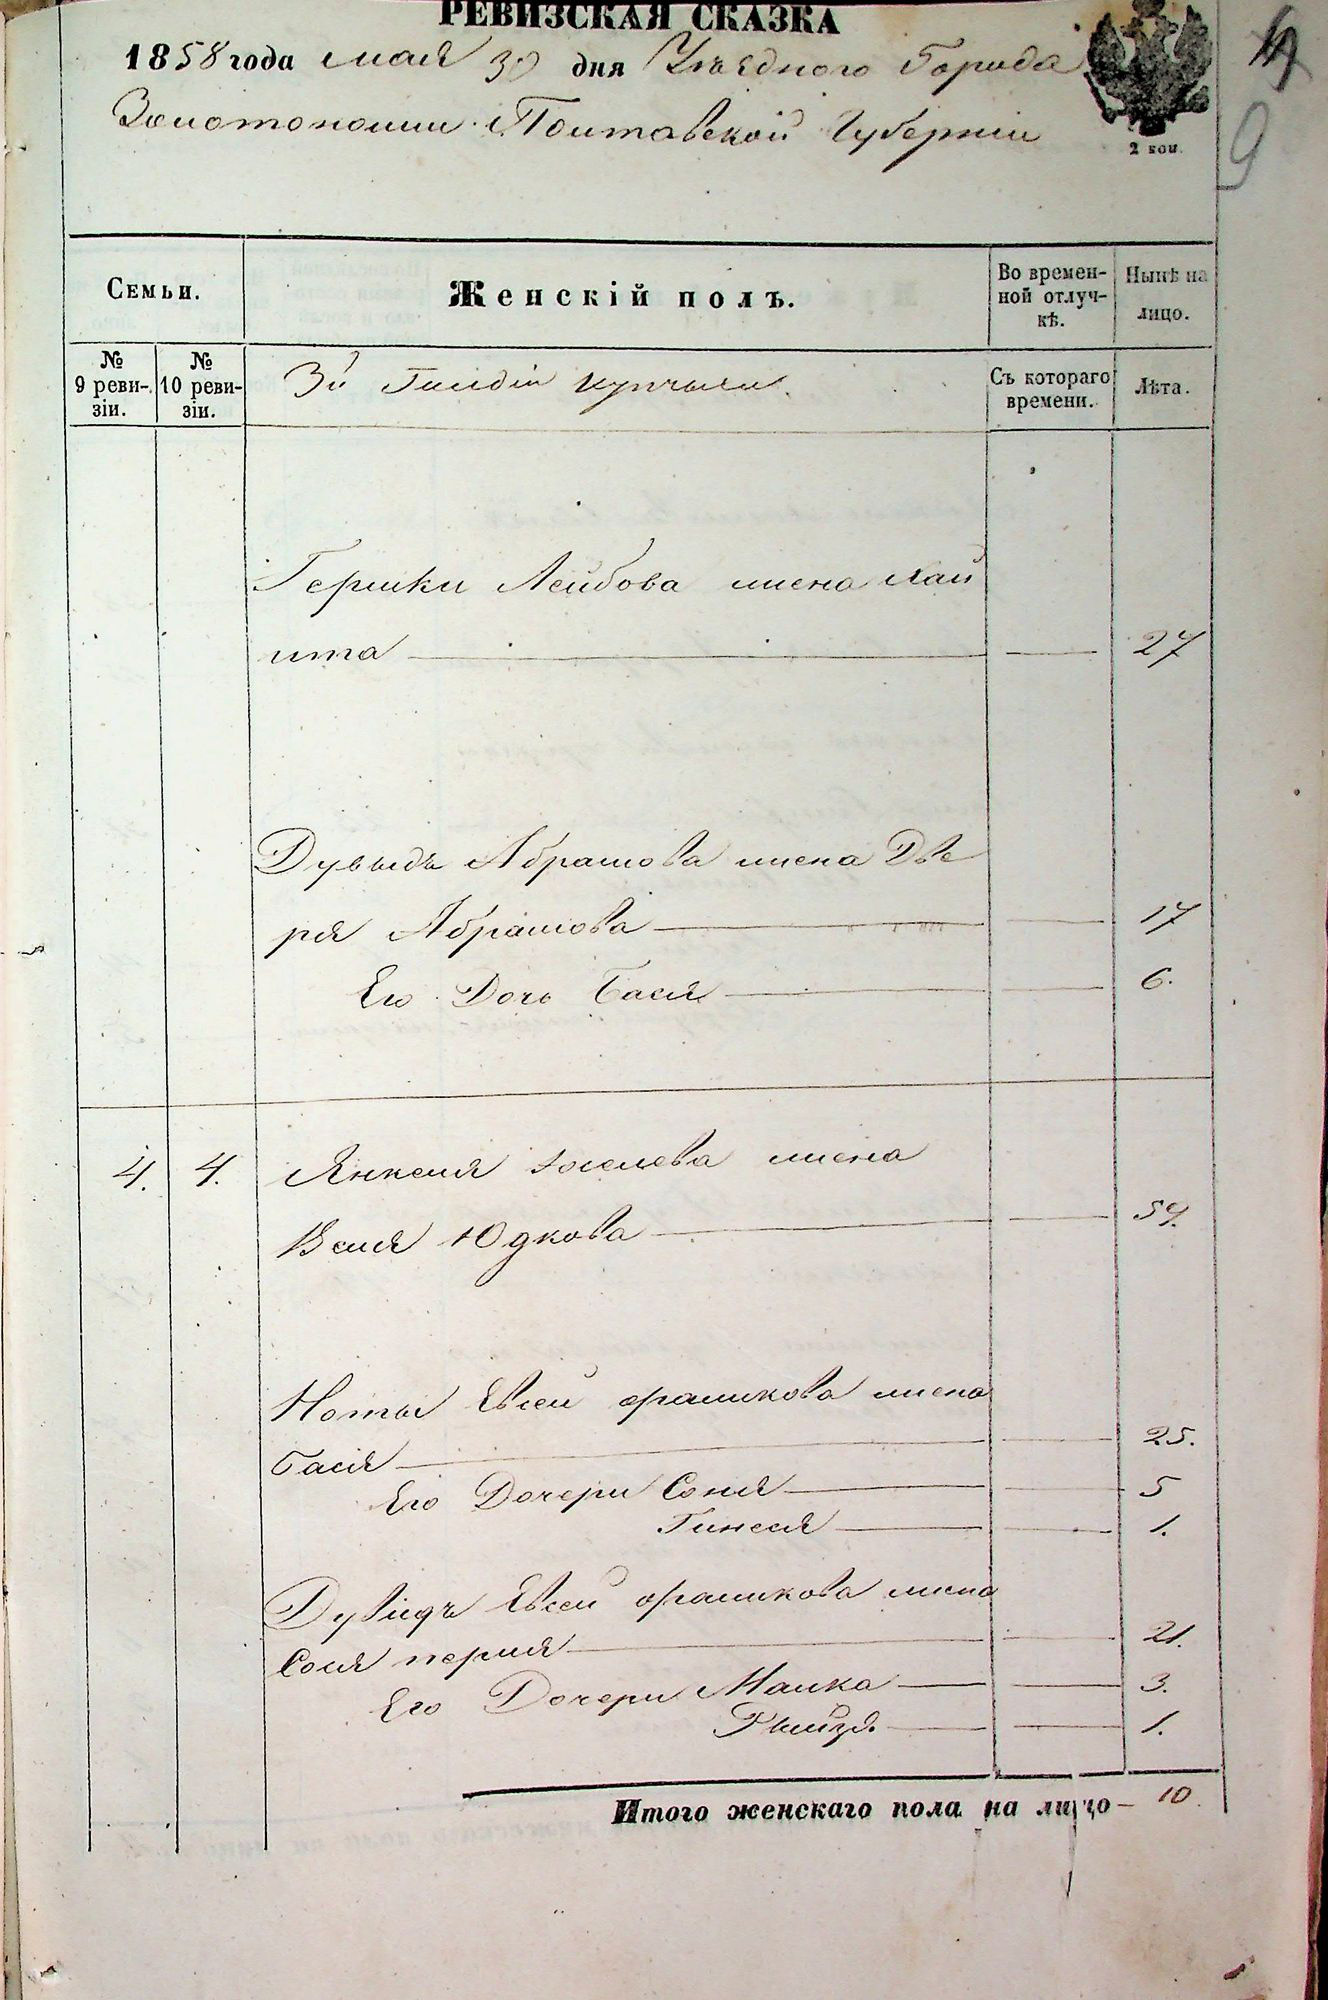 РЕВИЗСКАЯ СКАЗКА
4
1858 года мая 30 дня Уѣзднаго Города
9
Золотоноши Полтавской Губерніи
2 коп.
Семьи.
Женскій полъ.
Во времен-
ной отлуч-
кѣ.
Нынѣ на
лицо.
№
9 реви-
зіи.
№
10 реви-
зіи.
3й Гильдіи купчихи.
Съ котораго
времени.
Лѣта.
Гершки Лейбова жена Хай
ита — — 27
Дувыдъ Абрамова жена Две
ря Абрамова — — 17
Его Дочь Бася — — 6.
4. 4. Янкеля Іоселева жена
Юдкова — — 59.
Ноты Евсей Фрамикова жена
Бася — — 25.
Его Дочери Соня — — 5
Гинеся — — 1.
Дувидъ Евсей Фрамикова жена
Соня перля — — 21.
Его Дочери Малка — — 3.
— — 1.
Итого женскаго пола на лицо — 10